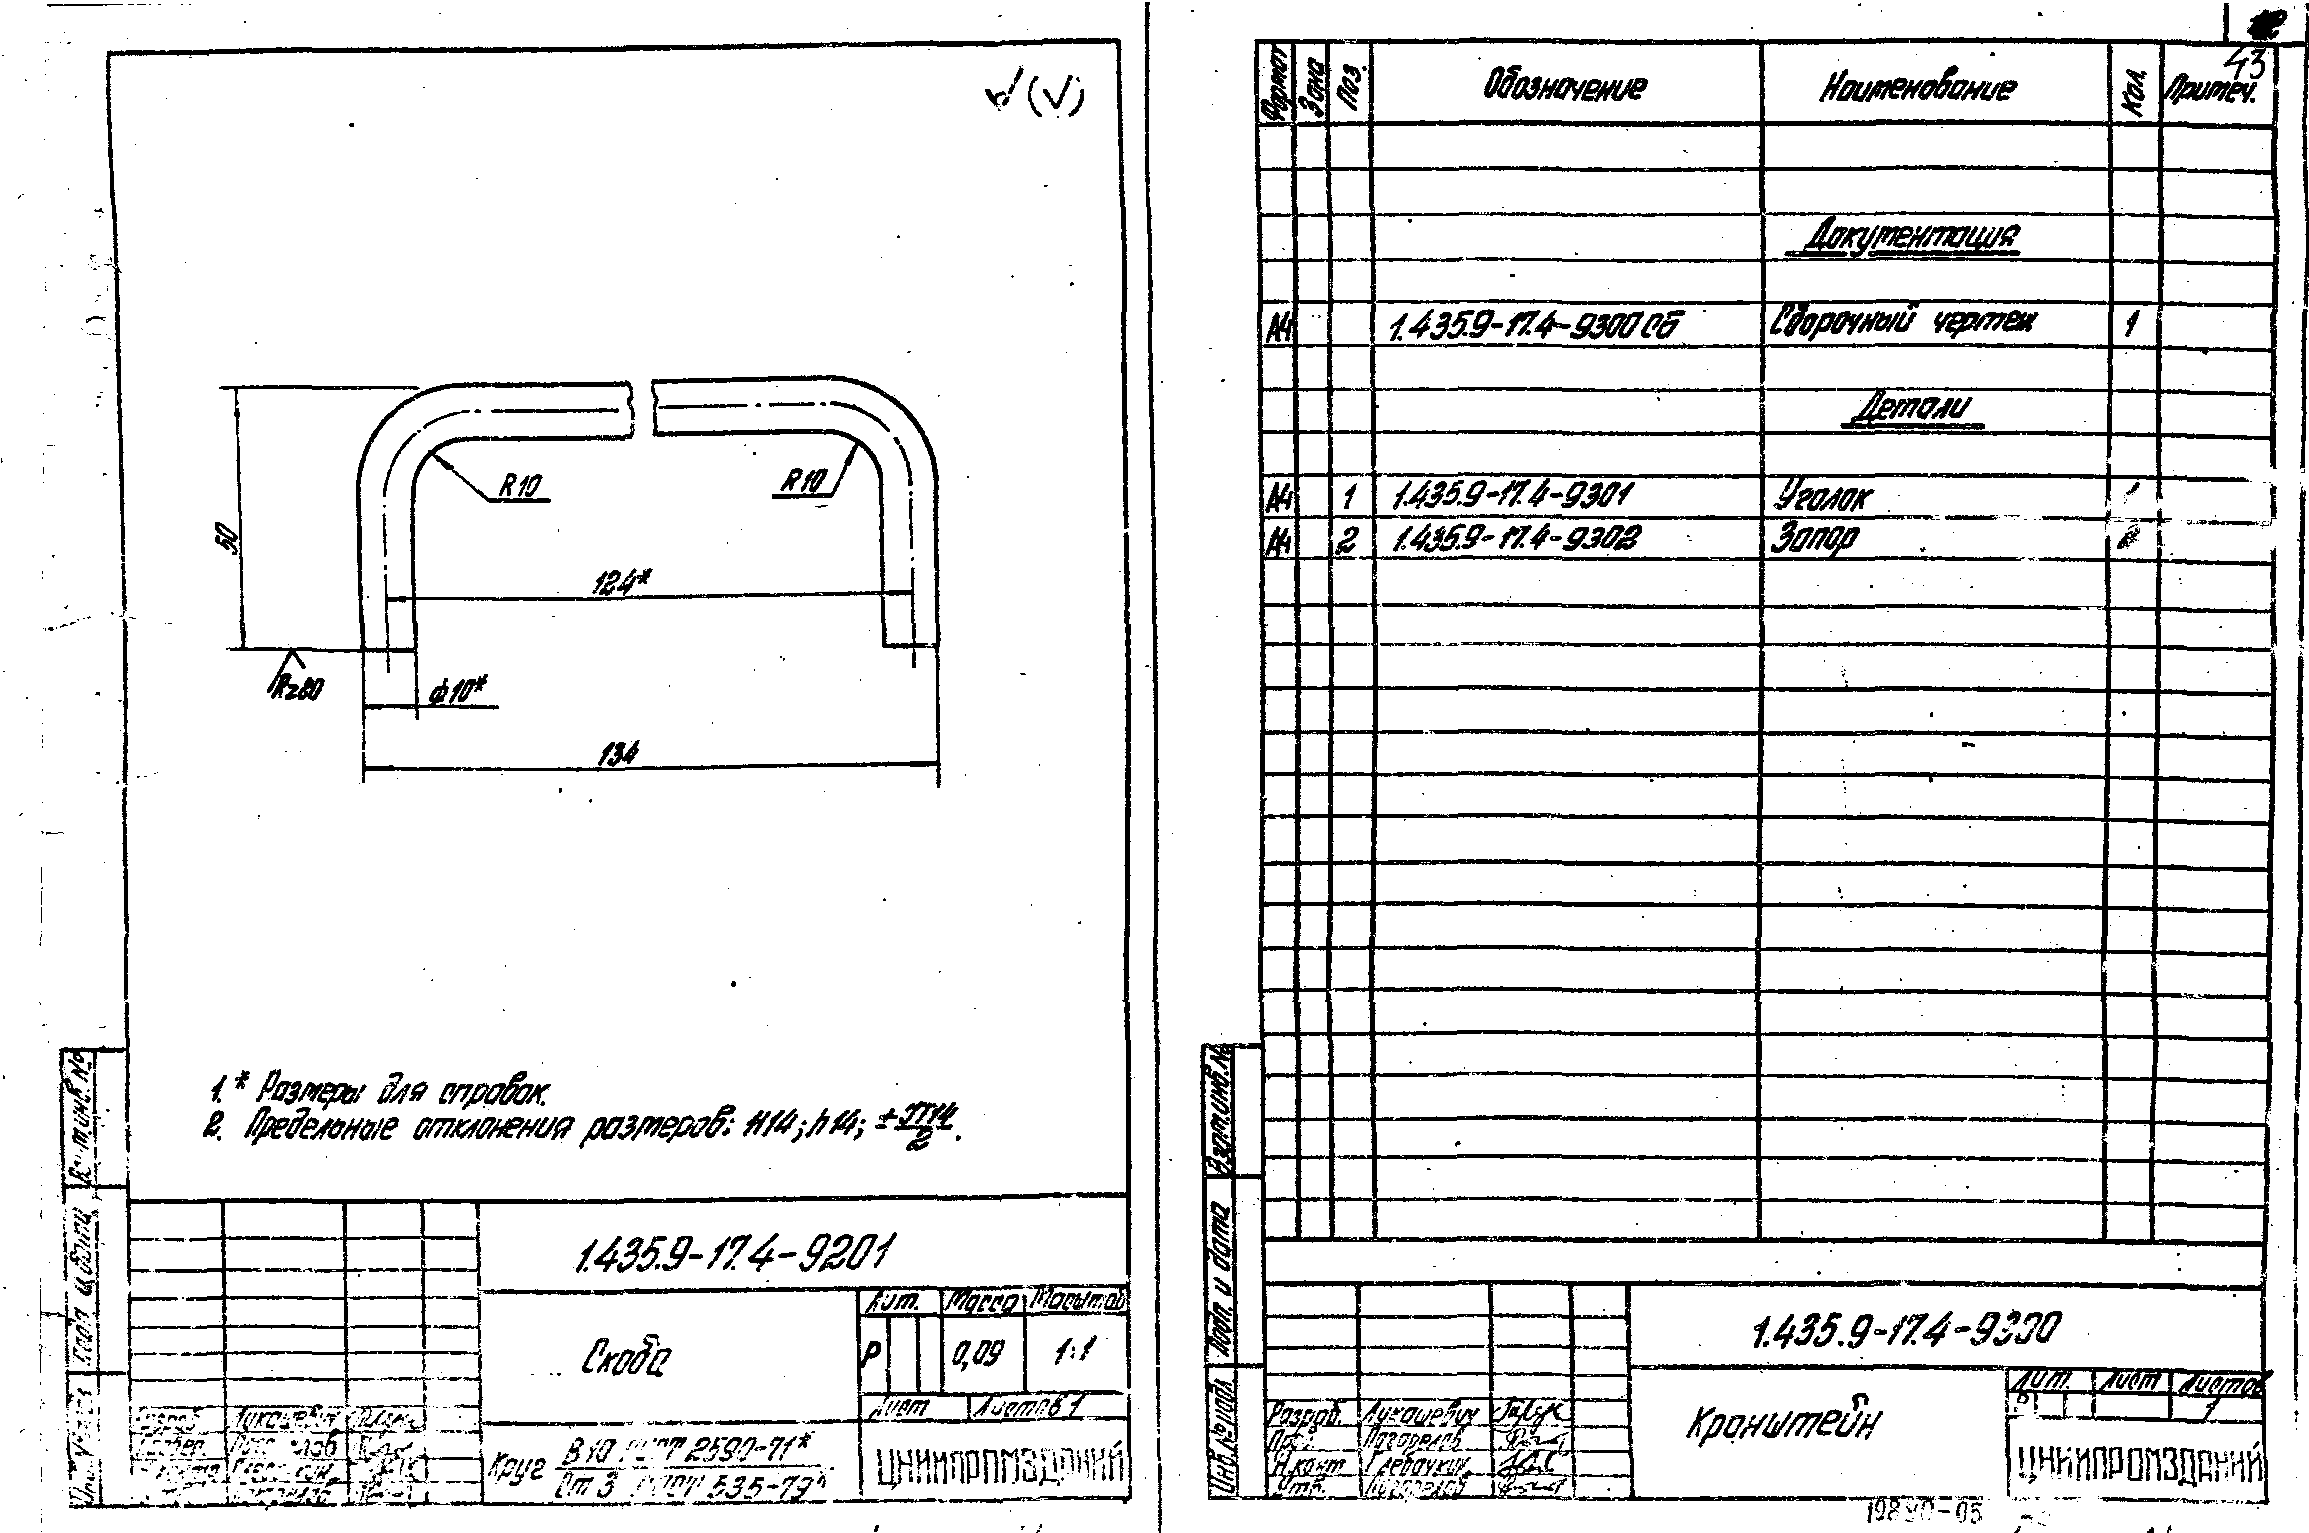 (√)
R10
R10
50
124*
Rz80
ф10*
134
1.* Размеры для справок.
2. Предельные отклонения размеров: H14; h14; ± IT14/2.
1.435.9-17.4-9201
Лит. Масса Масштаб
Скоба
Р 0,09 1:1
Лист Листов 1
Круг В10 ГОСТ 2590-71*
Ст 3 ГОСТ 535-79*
ЦНИИПРОМЗДАНИЙ
Разраб. Лукашевич
Взам. инв. №
Подп. и дата
43
Формат Зона Поз. Обозначение Наименование Кол. Примеч.
Документация
А4 1.435.9-17.4-9300 СБ Сборочный чертеж 1
Детали
А4 1 1.435.9-17.4-9301 Уголок
А4 2 1.435.9-17.4-9302 Запор
Взам. инв. №
Подп. и дата
Инв. № подл.
1.435.9-17.4-9300
Лит. Лист Листов
Р 1
Кронштейн
Разраб. Лукашевич
Погорелов
Н.конт
Утв. Погорелов
ЦНИИПРОМЗДАНИЙ
19890-05